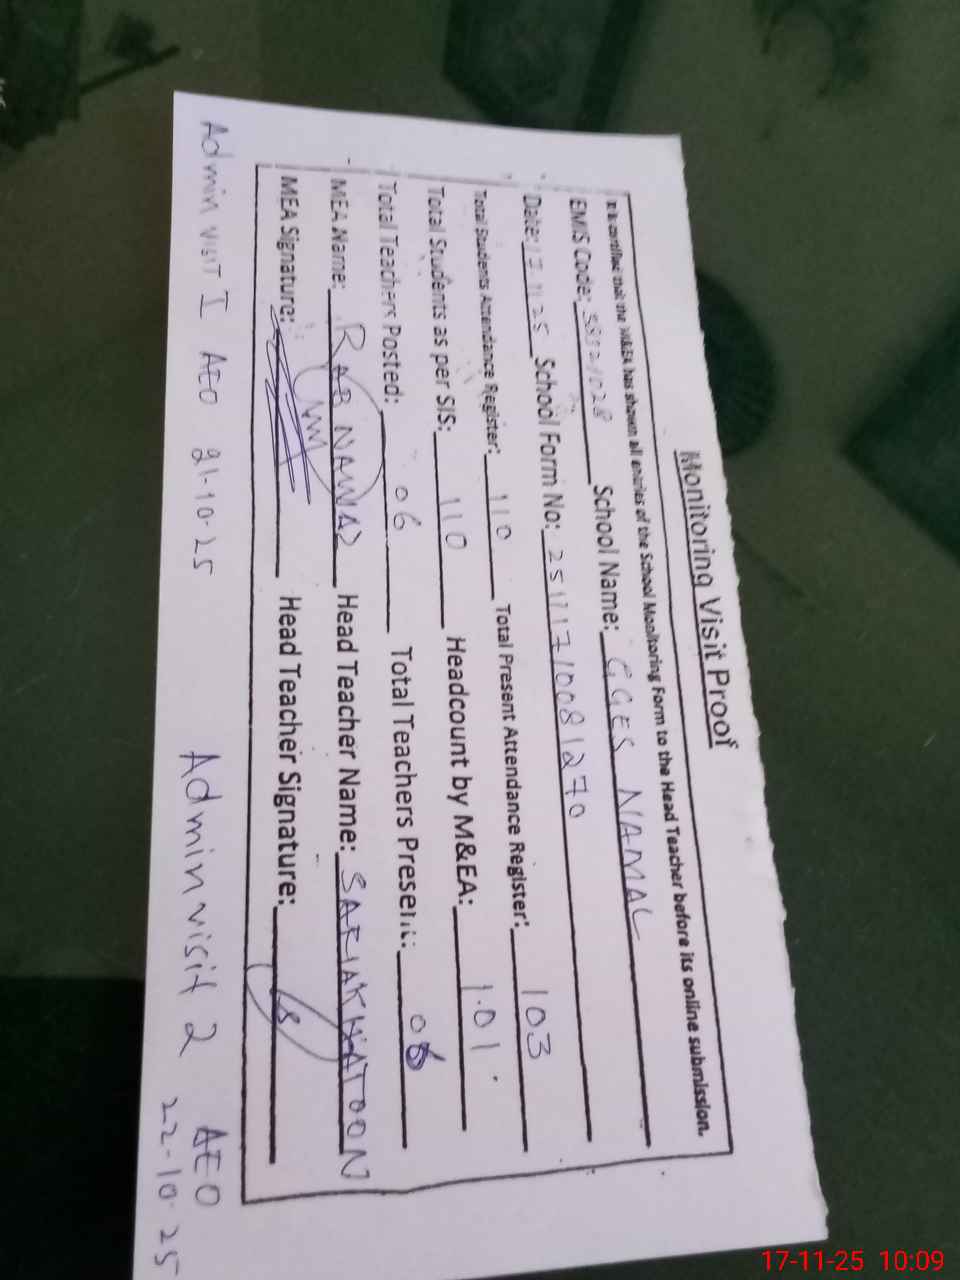 Monitoring Visit Proof
It is certified that the M&EA has shown all enteries of the School Monitoring Form to the Head Teacher before its online submission.
EMIS Code: School Name: GGES NAMAL
Date: 17.11.25 School Form No: 25111710081270
Total Students Attendance Register: 110 Total Present Attendance Register: 103
Total Students as per SIS: 110 Headcount by M&EA: 101
Total Teachers Posted: 06 Total Teachers Present: 06
MEA Name: RAB NAWAZ Head Teacher Name: SAFIA KHATOON
MEA Signature: Head Teacher Signature:
Admin visit I AEO 21-10-25 Admin visit 2 AEO 22-10-25
17-11-25 10:09